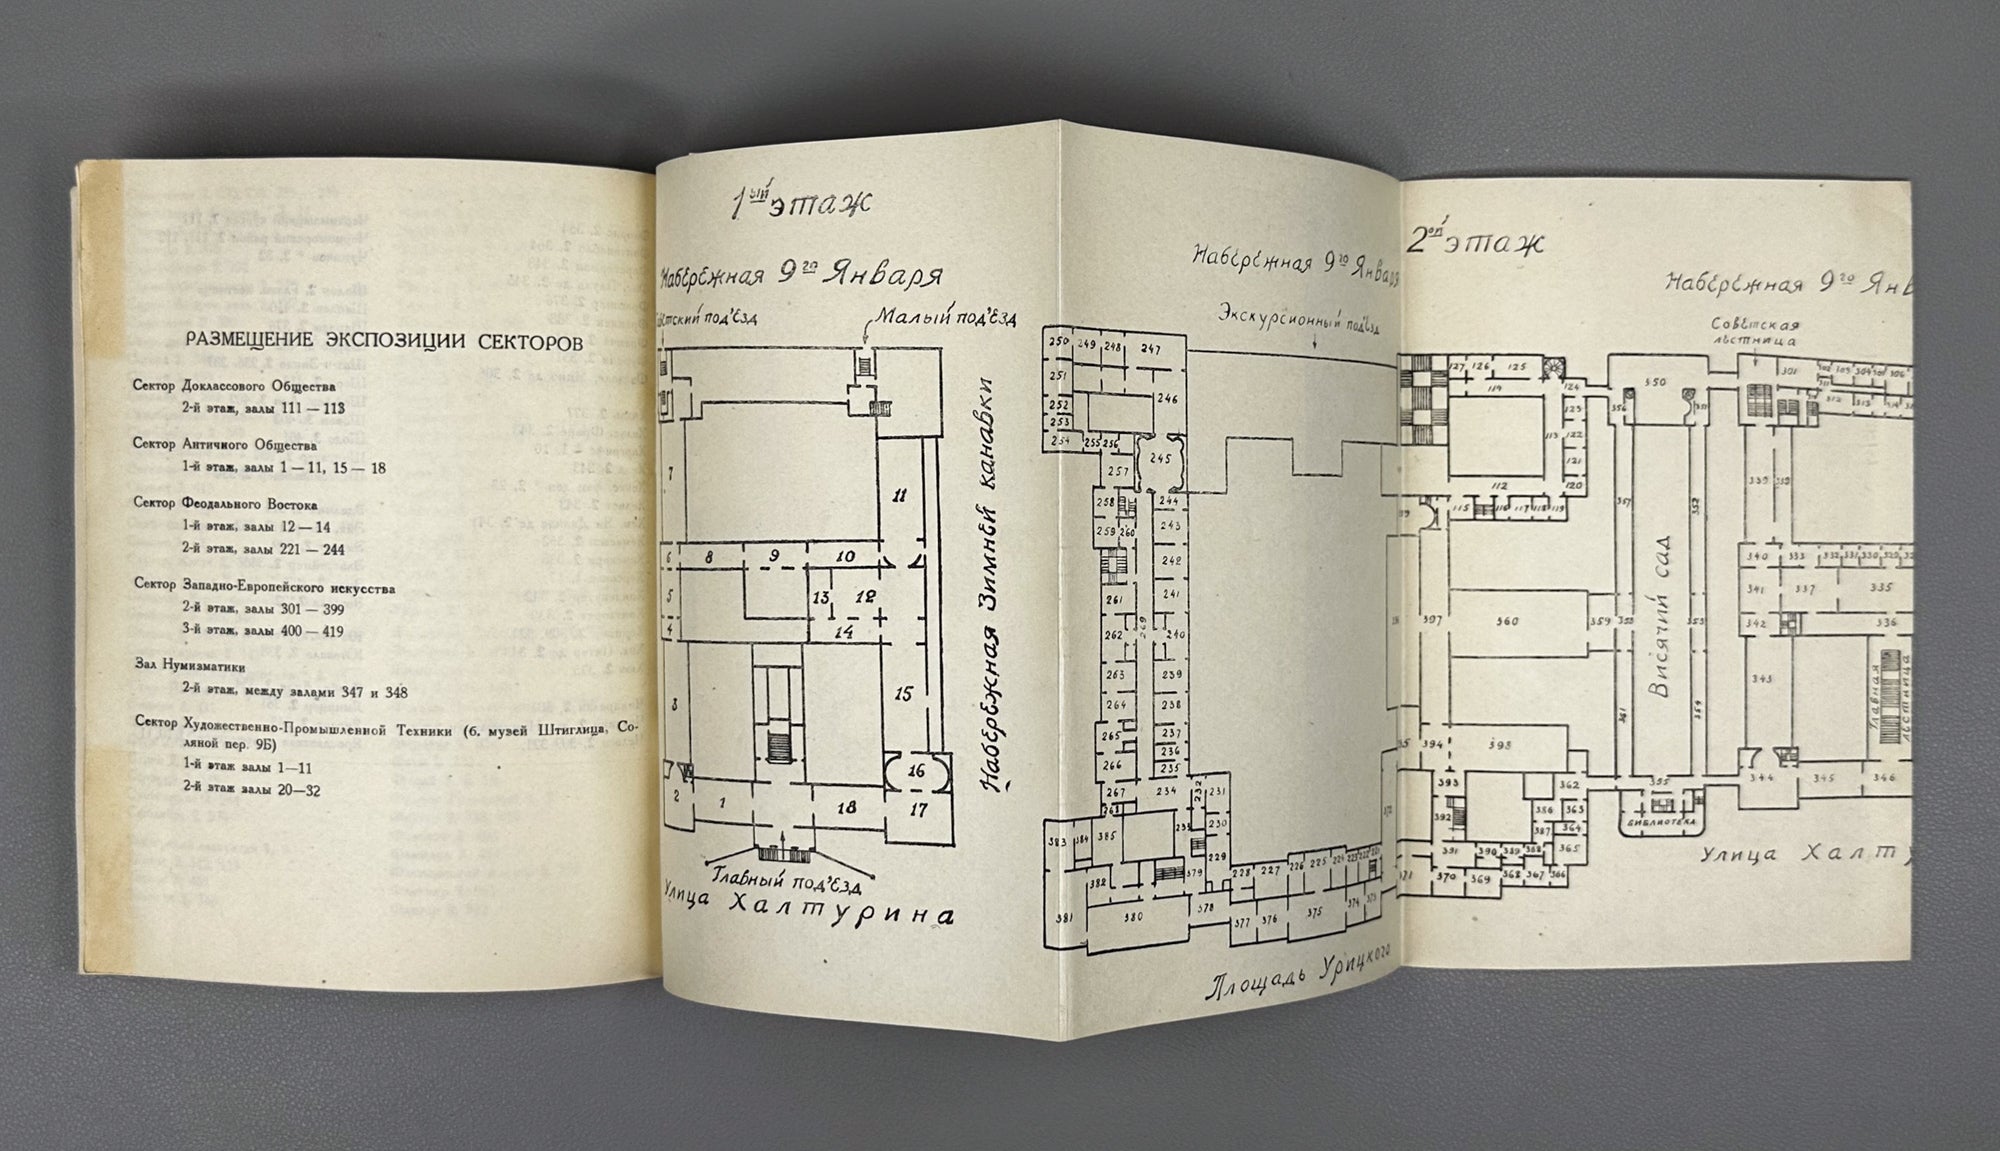 РАЗМЕЩЕНИЕ ЭКСПОЗИЦИИ СЕКТОРОВ
Сектор Доклассового Общества
2-й этаж, залы 111 — 113
Сектор Античного Общества
1-й этаж, залы 1 — 11, 15 — 18
Сектор Феодального Востока
1-й этаж, залы 12 — 14
2-й этаж, залы 221 — 244
Сектор Западно-Европейского искусства
2-й этаж, залы 301 — 399
3-й этаж, залы 400 — 419
Зал Нумизматики
2-й этаж, между залами 347 и 348
Сектор Художественно-Промышленной Техники (б. музей Штиглица, Со-
ляной пер. 9Б)
1-й этаж залы 1—11
2-й этаж залы 20—32
1ый этаж
Набережная 9го Января
под'езд
Малый под'езд
7
11
6
8
9
10
5
13
12
4
14
3
15
16
2
1
18
17
Главный под'езд
Улица Халтурина
Набережная Зимней канавки
Набережная 9го Января
Экскурсионный под'езд
250
249
248
247
251
246
252
253
254
255
256
245
257
258
244
259
260
243
242
261
241
262
269
240
263
239
264
238
265
237
236
266
235
267
234
232
231
268
230
383
384
385
233
229
228
227
226
225
224
223
222
221
382
379
381
380
378
377
376
375
374
373
372
Площадь Урицкого
2ой этаж
Набережная 9го Янв
Советская
лестница
127
126
125
124
119
123
113
122
121
112
120
115
116
117
118
119
350
356
351
301
302
303
304
305
306
311
312
313
314
339
338
357
352
Висячий сад
340
333
332
331
330
329
341
337
335
342
336
397
360
359
358
353
343
361
354
Главная
лестница
394
393
355
344
345
346
393
362
392
386
363
387
364
365
391
390
389
388
371
370
369
368
367
366
БИБЛИОТЕКА
Улица Халту